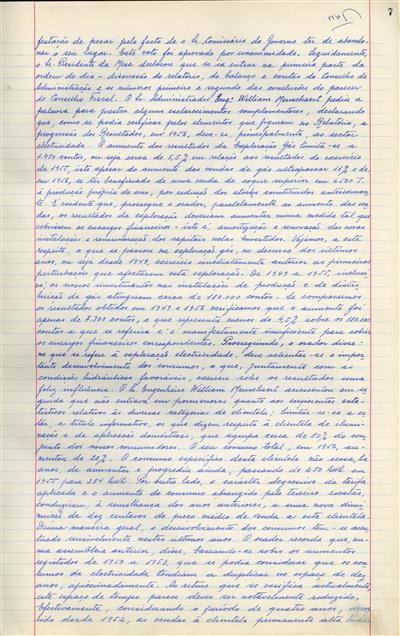 7
festarão de pesar pelo facto de o Sr. Comissário do Governo ter de abando-
nar o seu lugar. Este voto foi aprovado por unanimidade. Seguidamente,
o Sr. Presidente da Mesa declarou que se ia entrar na primeira parte da
ordem do dia - discussão do relatório, do balanço e contas do Conselho de
Administração e os números primeiro e segundo das conclusões do parecer
do Conselho Fiscal. O Sr. Administrador Engº William Munchart pediu a
palavra para prestar alguns esclarecimentos complementares, declarando
que, como se podia verificar pelos elementos que figuram no Relatório, a
progressão dos Resultados, em 1956, deve-se, principalmente, ao sector
electricidade. O aumento dos resultados da Exploração Gás limita-se a
1.450 contos, ou seja cerca de 5,5% em relação aos resultados do exercício
de 1955, isto apesar do aumento das vendas de gás ultrapassar 10% e de
em 1956, se ter beneficiado de uma venda de coque superior em
à produção própria do ano, por redução dos stocks constituídos anteriormen-
te. É evidente que, prosegue o orador, paralelamente ao aumento das ven-
das, os resultados da exploração deveriam aumentar numa medida tal que
cobrissem os encargos financeiros - isto é, amortização e renovação das novas
instalações e remuneração dos capitais nelas investidos. Vejamos, a este
respeito, o que se passou na exploração gás, no decurso dos últimos
anos, ou seja desde 1949, exercício imediatamente anterior às primeiras
perturbações que afectaram esta exploração. De 1949 a 1955, inclusi-
vé, os nossos investimentos nas instalações de produção e de distri-
buição de gás atingiram cerca de 180.000 contos. Se compararmos
os resultados obtidos em 1949 e 1956 verificamos que o aumento foi
apenas de 7.700 contos, o que representa menos de 4,5% sobre os 180.000
contos a que se referira e é manifestamente insuficiente para cobrir
os encargos financeiros correspondentes. Prosseguindo, o orador disse:
no que se refere à exploração electricidade, deve salientar-se o impor-
tante desenvolvimento dos consumos, o que, juntamente com as
condições hidráulicas favoráveis, exerceu sobre os resultados uma
feliz influência. O Sr. Engenheiro William Munchart acrescentou em se-
guida que não entrava em pormenores quanto aos coeficientes esta-
tísticos relativos às diversas categorias de clientela: limitar-se-ia a ci-
tar, a título informativo, os que dizem respeito à clientela de ilumi-
nação e de aplicações domésticas, que agrupa cerca de 80% do con-
junto dos nossos consumidores. O seu consumo total, em 1956, au-
mentou de 20%. O consumo específico desta clientela não cessa, há
anos, de aumentar e progrediu ainda, passando de 250 kwh. em
1955 para 284 kwh. Por outro lado, o carácter degressivo da tarifa
aplicada e o aumento do consumo abrangido pelo terceiro escalão,
conduziram, à semelhança dos anos anteriores, a uma nova dimi-
nuição de dez centavos do preço médio de venda a esta clientela.
Duma maneira geral, o desenvolvimento dos consumos tem-se acen-
tuado sensivelmente nestes últimos anos. O orador recorda que, nu-
ma assembleia anterior, disse, baseando-se sobre os aumentos
registados de 1950 a 1953, que se podia considerar que os con-
sumos de electricidade tendiam a duplicar no espaço de dez
anos, aproximadamente. Ao ritmo que se verifica actualmente,
este espaço de tempo parece dever ser notavelmente reduzido.
Efectivamente, considerando o período de quatro anos, decor-
rido desde 1952, as vendas à clientela permanente alta